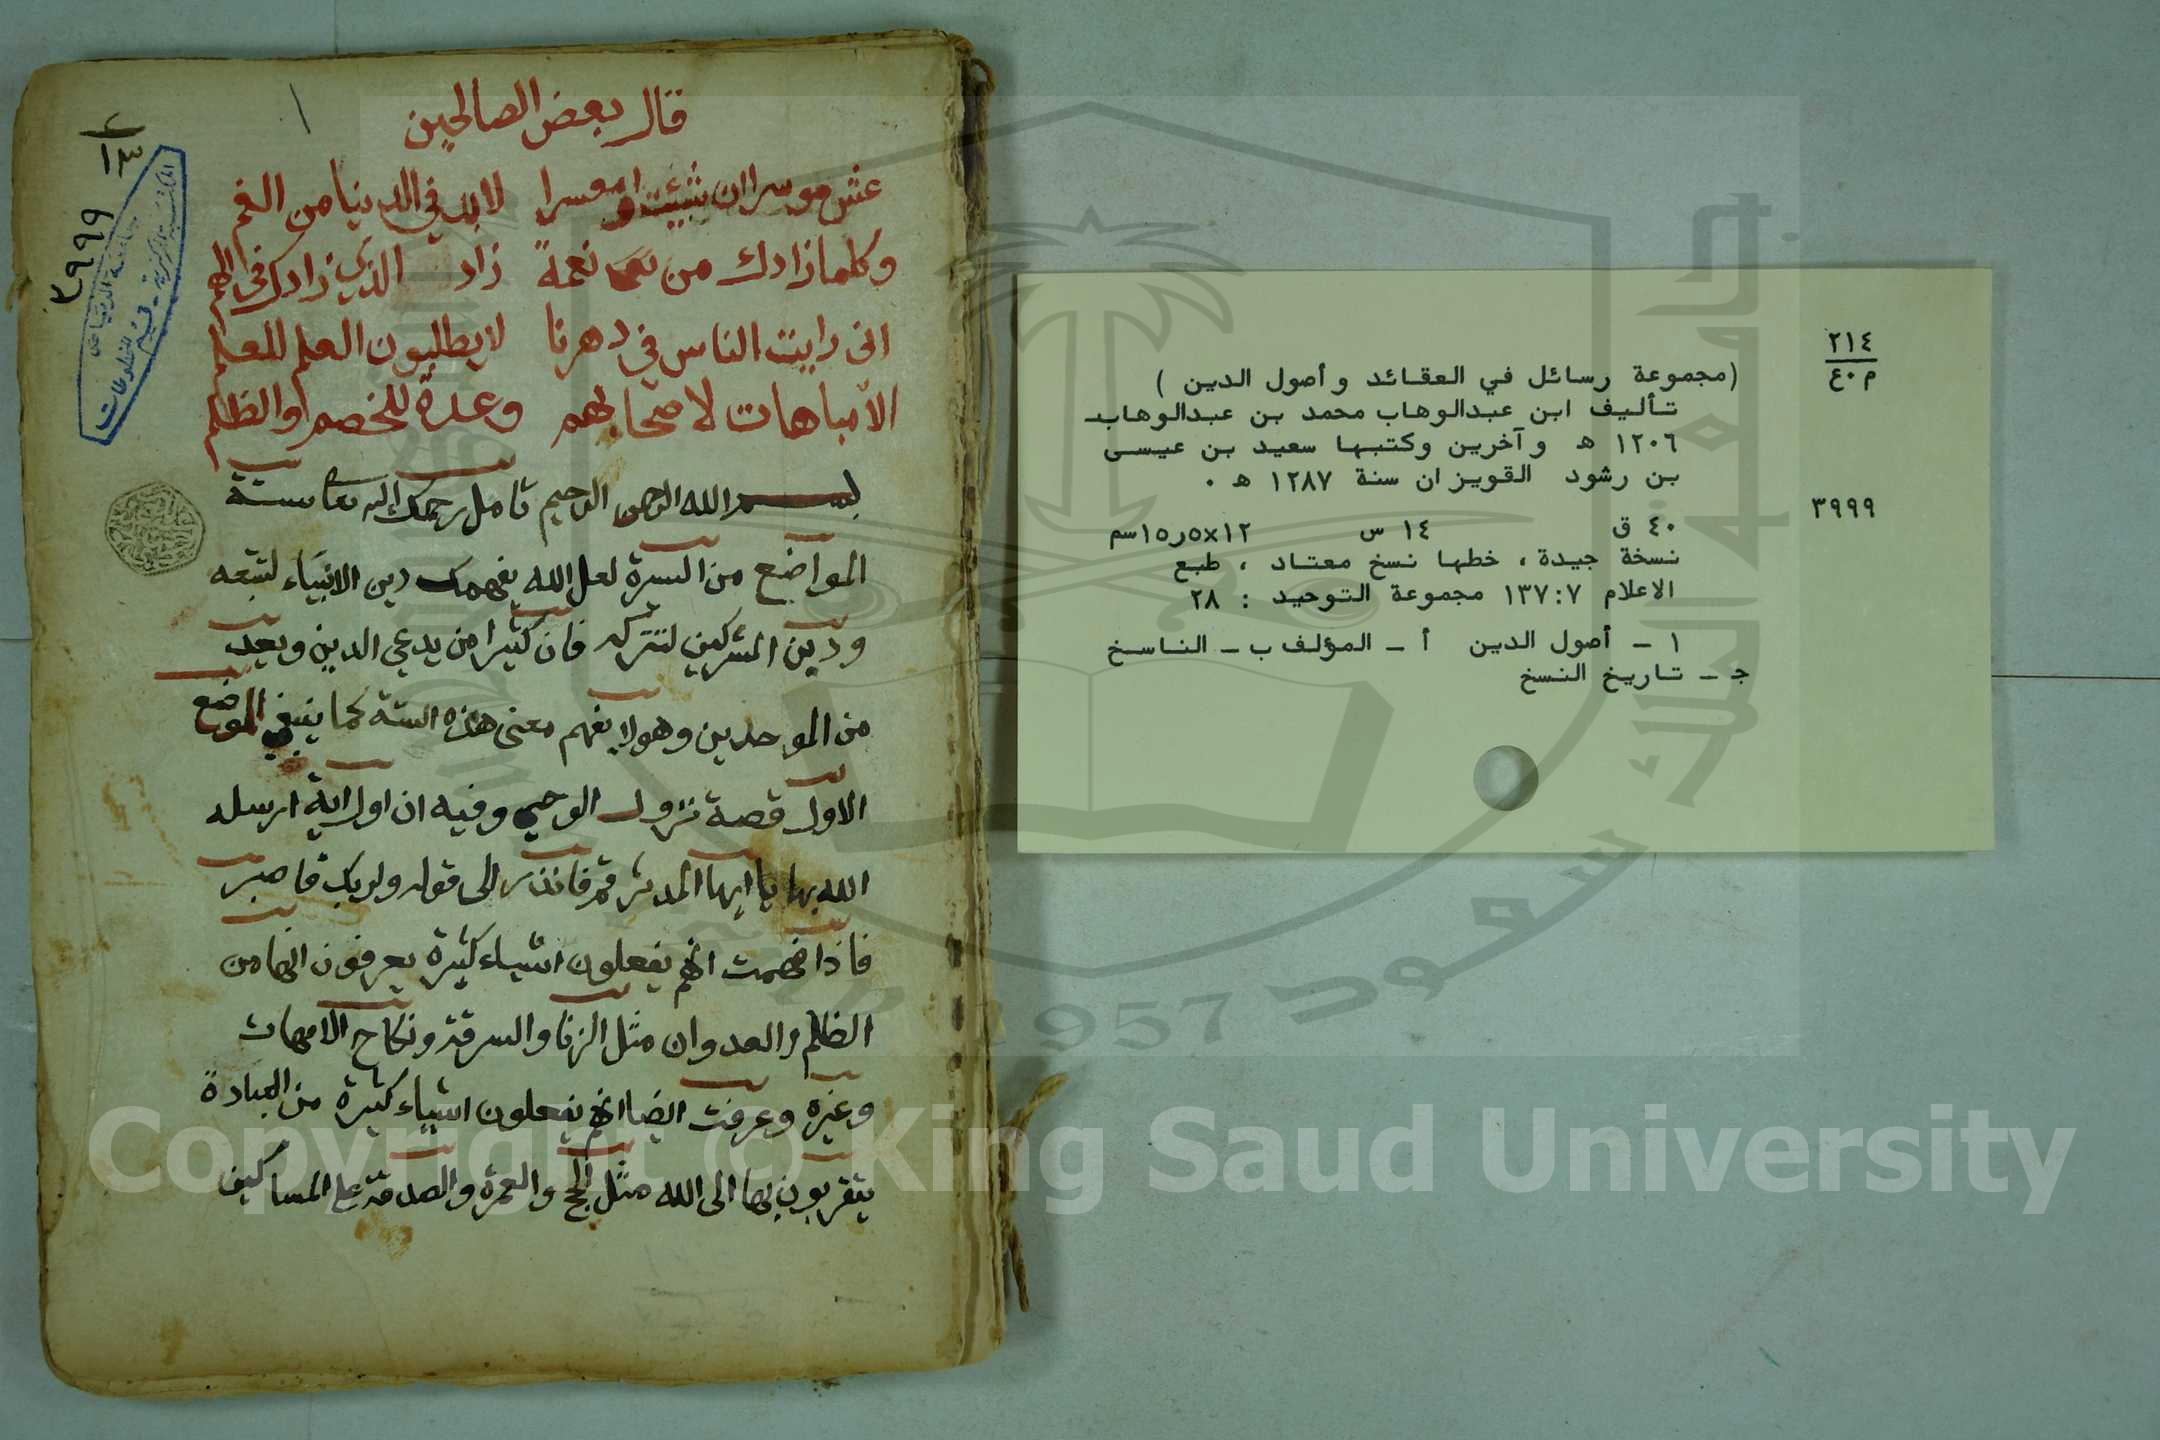 قال بعض الصالحين
عش موسرا ان شئت او معسرا لابد في الدنيا من الغم
وكلما زادك من نعمة زاد الذي زادك في الهم
اني رايت الناس في دهرنا لا يطلبون العلم للعلم
الا مباهات لاصحابهم وعدة للخصم والظلم
بسم الله الرحمن الرحيم تامل رحمك الله ستة
المواضع من السيرة لعل الله يفهمك دين الانبياء لتتبعه
ودين المشركين لتتركه فان كثيرا من يدعي الدين ويعد
من الموحدين وهو لا يفهم معنى هذه الستة كما ينبغي الموضع
الاول قصة نزول الوحي وفيه ان اول اية ارسله
الله بها يا ايها المدثر قم فانذر الى قوله ولربك فاصبر
فاذا فهمت انهم يفعلون اشياء كثيرة يعرفون انها من
الظلم والعدوان مثل الزنا والسرقة ونكاح الامهات
وغيره وعرفت ايضا انهم يفعلون اشياء كثيرة من العبادة
يتقربون بها الى الله مثل الحج والعمرة والصدقة على المساكين
١
٢
١٣
٣٩٩٩
٢١٤
م ٤٠
(مجموعة رسائل في العقائد وأصول الدين )
تأليف ابن عبدالوهاب محمد بن عبدالوهاب
١٢٠٦ ه وآخرين وكتبها سعيد بن عيسى
بن رشود القويزان سنة ١٢٨٧ ه .
٣٩٩٩
٤٠ ق ١٤ س ١٢×١٥٫٥سم
نسخة جيدة ، خطها نسخ معتاد ، طبع
الاعلام ١٣٧:٧ مجموعة التوحيد : ٢٨
١ - أصول الدين أ - المؤلف ب - الناسخ
ج - تاريخ النسخ
جامعة الملك سعود
1957
Copyright © King Saud University